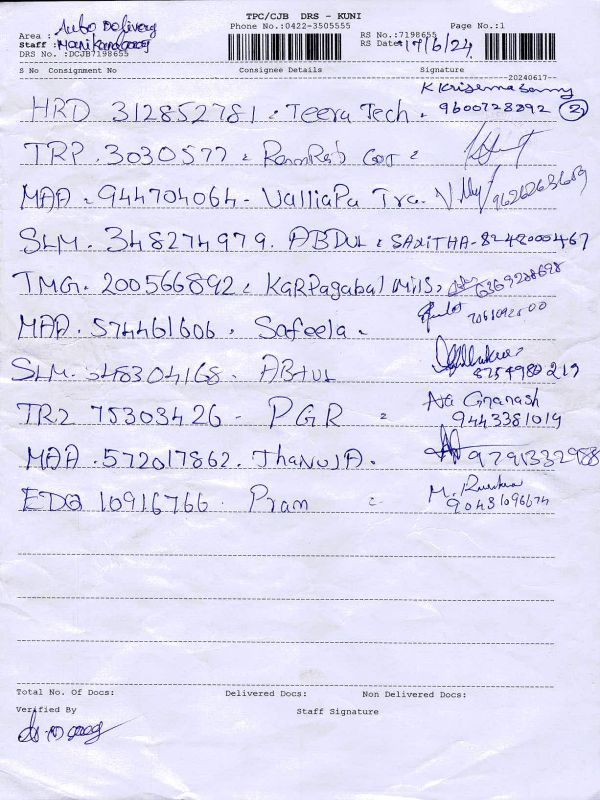 TPC/CJB DRS - KUNI
Phone No.:0422-3505555
Page No.:1
Area : Auto Delivery
RS No.:7198655
Staff : Manikandaraj
RS Date: 17/6/24
DRS No. :DCJB7198655
S No Consignment No Consignee Details Signature
20240617
K Krisema Samy
HRD 312852781 Teera Tech. 9600728892 (2)
TRP. 3030577
MAA. 944704064 - ValliaPa Tra.
SLM. 348274979. ABDUL SAXITHA- 8248000467
TMG. 200566892 KarPagabal Mills, 6369288698
MAA. 574461606. Safeela. 7061092500
SLM. 348304168 - ABdUL 8754980219
TRZ 75303426 - PGR Ata Gnanash
9443381019
MAA. 572017862. ThanUJA. 9791332988
EDQ 10916766 Pram M.
90431096674
Total No. Of Docs: Delivered Docs: Non Delivered Docs:
Verified By
Staff Signature